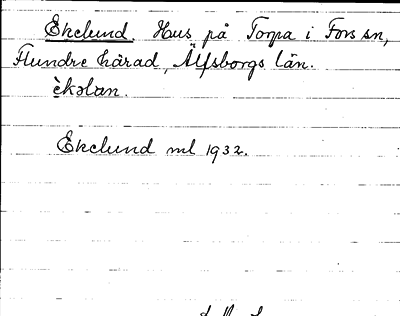 Ekelund. Hus på Torpa i Fors sn,
Flundre härad, Älfsborgs län.
èkəlan.
Ekelund ml 1932.